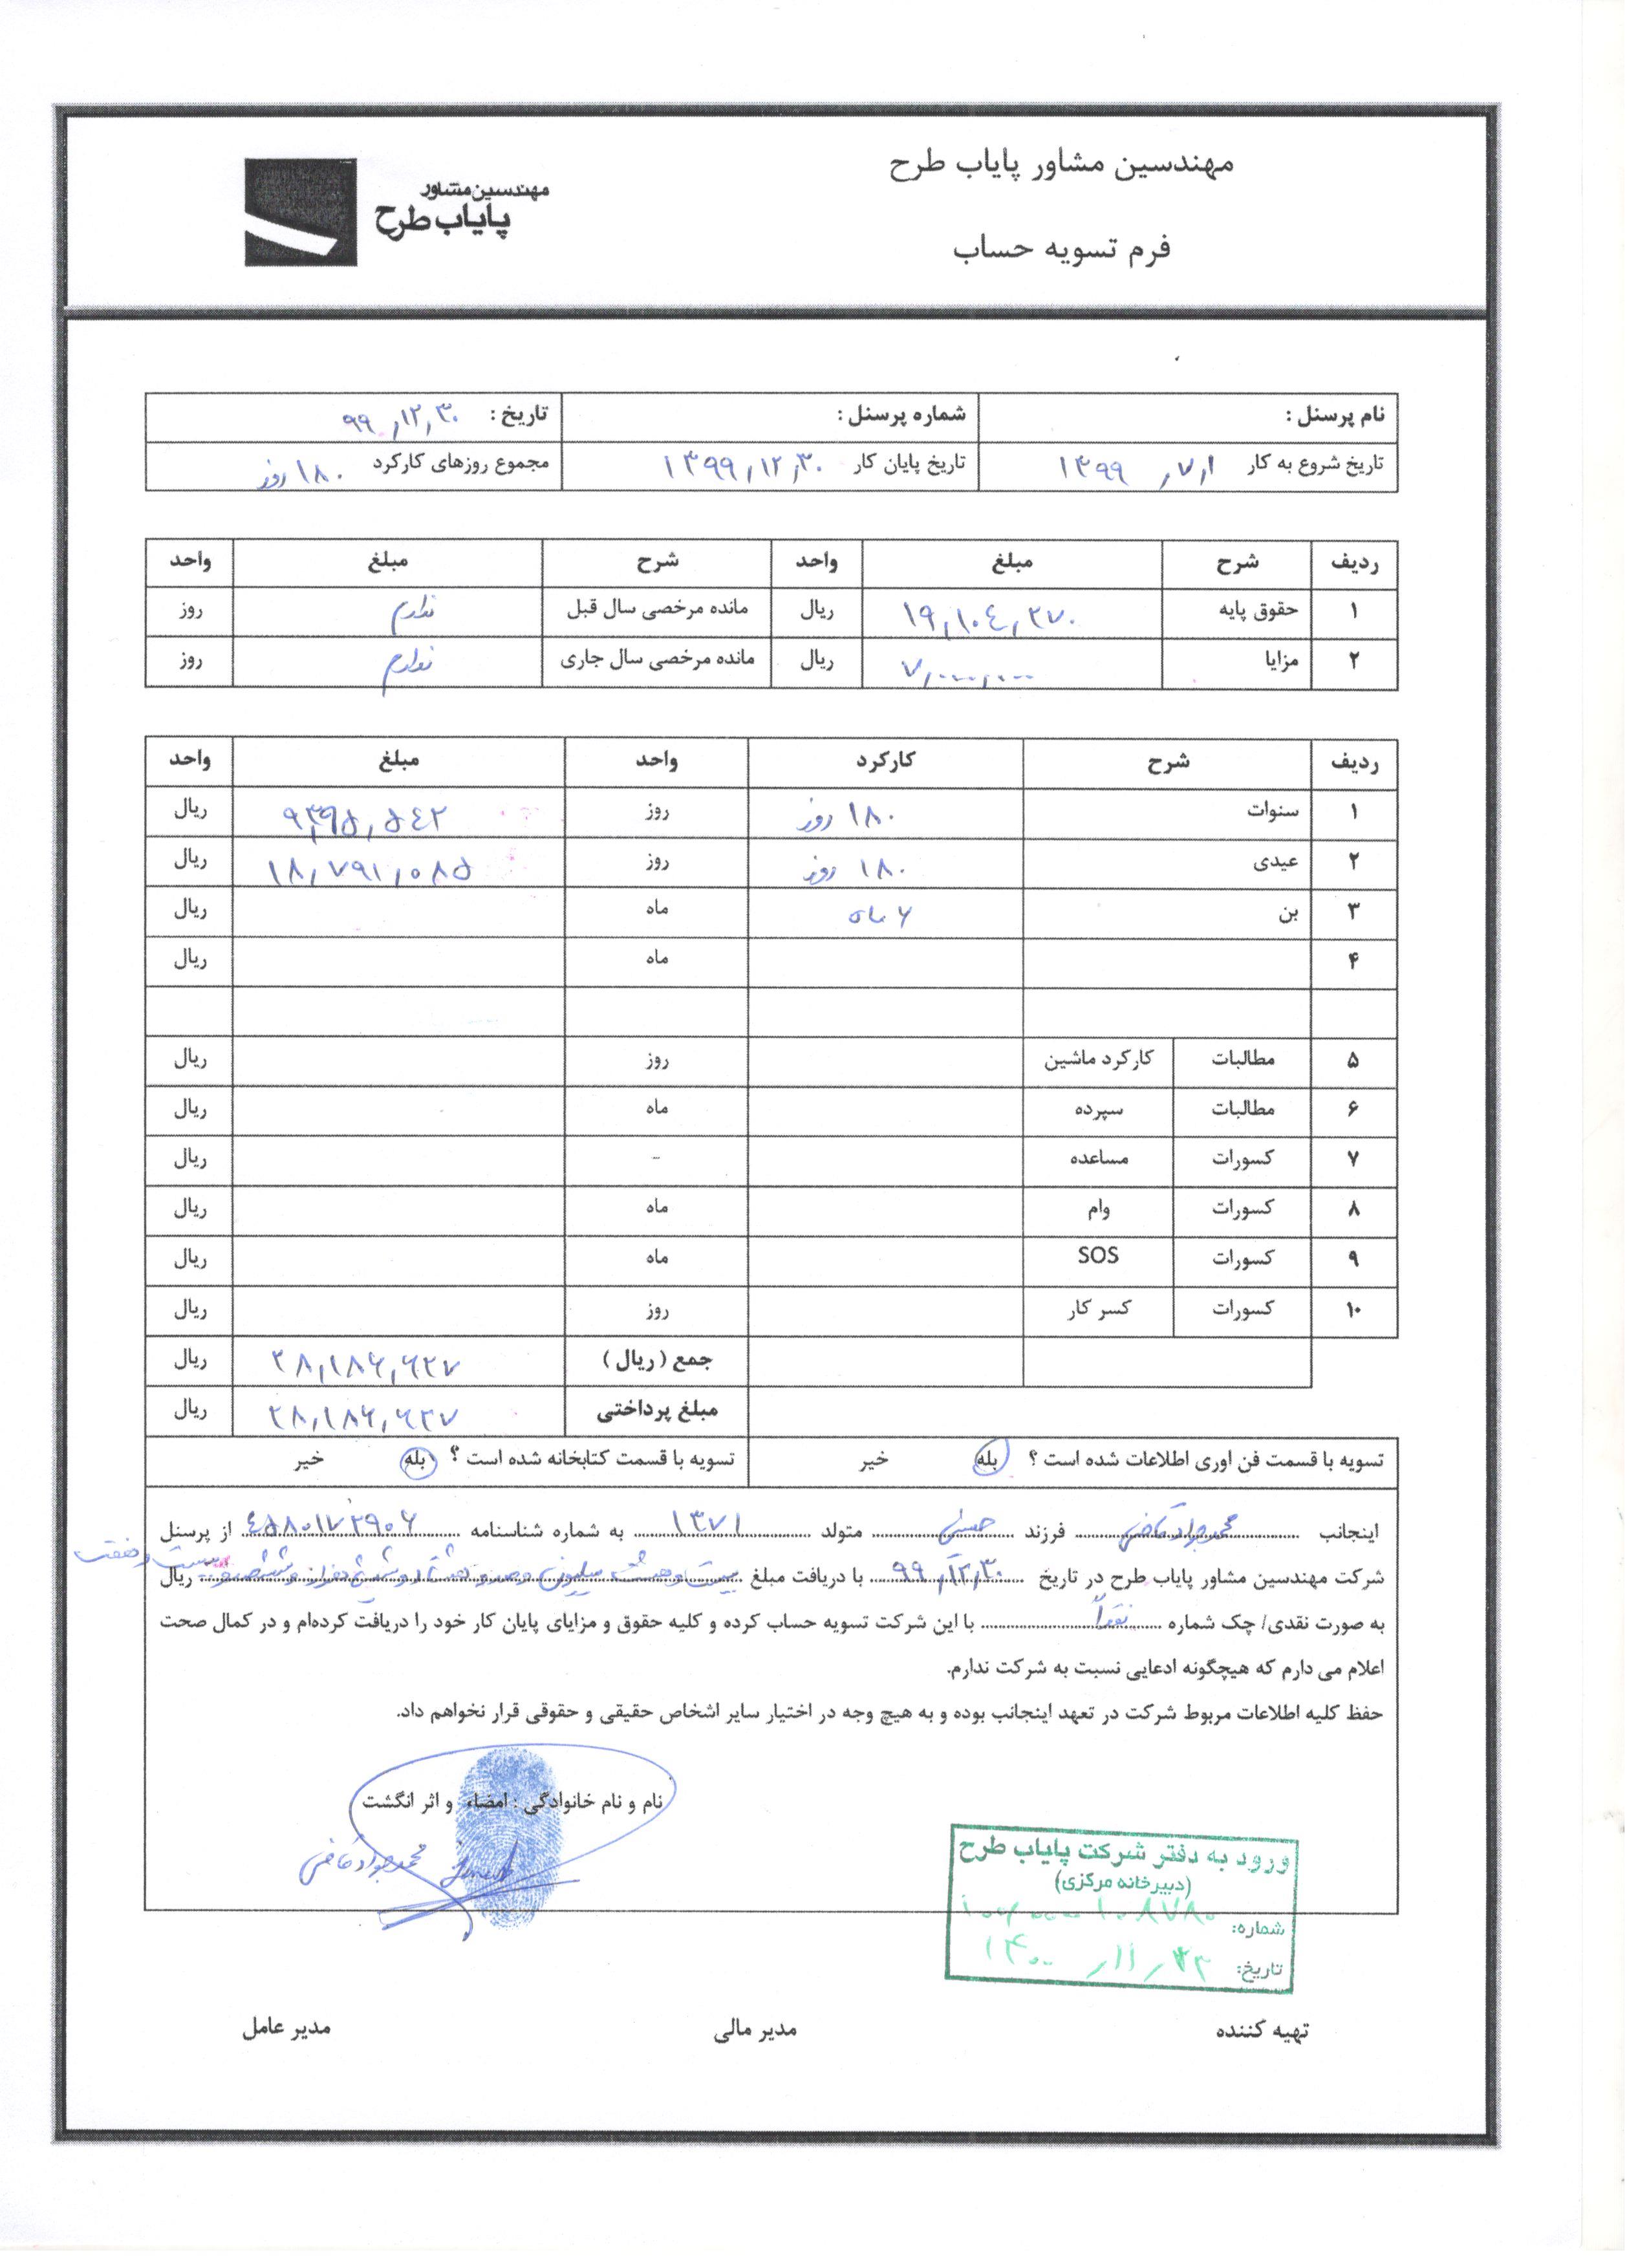 مهندسین مشاور پایاب طرح
مهندسین مشاور
پایاب طرح
فرم تسویه حساب
نام پرسنل :
شماره پرسنل :
تاریخ : ۹۹,۱۲,۳۰
تاریخ شروع به کار ۱۳۹۹ ,۷,۱
تاریخ پایان کار ۱۳۹۹,۱۲,۳۰
مجموع روزهای کارکرد ۱۸۰ روز
ردیف شرح مبلغ واحد شرح مبلغ واحد
۱ حقوق پایه ۱۹,۱۰٤,۲۷۰ ریال مانده مرخصی سال قبل ندارم روز
۲ مزایا ۷,۰۰۰,۰۰۰ ریال مانده مرخصی سال جاری ندارم روز
ردیف شرح کارکرد واحد مبلغ واحد
۱ سنوات ۱۸۰ روز روز ۹,۳۹۵,۵٤۲ ریال
۲ عیدی ۱۸۰ روز روز ۱۸,۷۹۱,۰۸۵ ریال
۳ بن ۶ ماه ماه ریال
۴ ماه ریال
۵ مطالبات کارکرد ماشین روز ریال
۶ مطالبات سپرده ماه ریال
۷ کسورات مساعده - ریال
۸ کسورات وام ماه ریال
۹ کسورات SOS ماه ریال
۱۰ کسورات کسر کار روز ریال
جمع (ریال) ۲۸,۱۸۶,۶۲۷ ریال
مبلغ پرداختی ۲۸,۱۸۶,۶۲۷ ریال
تسویه با قسمت فن اوری اطلاعات شده است ؟ بله خیر
تسویه با قسمت کتابخانه شده است ؟ بله خیر
اینجانب محمدجواد فرزند متولد ۱۳۷۱ به شماره شناسنامه ٤۵۸۰۱۷۲۹۰۶ از پرسنل
شرکت مهندسین مشاور پایاب طرح در تاریخ ۹۹,۱۲,۳۰ با دریافت مبلغ بیست و هشت میلیون و صد و هشتاد و شش هزار و ششصد و بیست و هفت ریال
به صورت نقدی/ چک شماره نقداً با این شرکت تسویه حساب کرده و کلیه حقوق و مزایای پایان کار خود را دریافت کرده‌ام و در کمال صحت
اعلام می دارم که هیچگونه ادعایی نسبت به شرکت ندارم.
حفظ کلیه اطلاعات مربوط شرکت در تعهد اینجانب بوده و به هیچ وجه در اختیار سایر اشخاص حقیقی و حقوقی قرار نخواهم داد.
نام و نام خانوادگی : امضاء و اثر انگشت
محمدجواد
ورود به دفتر شرکت پایاب طرح
(دبیرخانه مرکزی)
شماره:
تاریخ: ۱۴۰۰
تهیه کننده
مدیر مالی
مدیر عامل